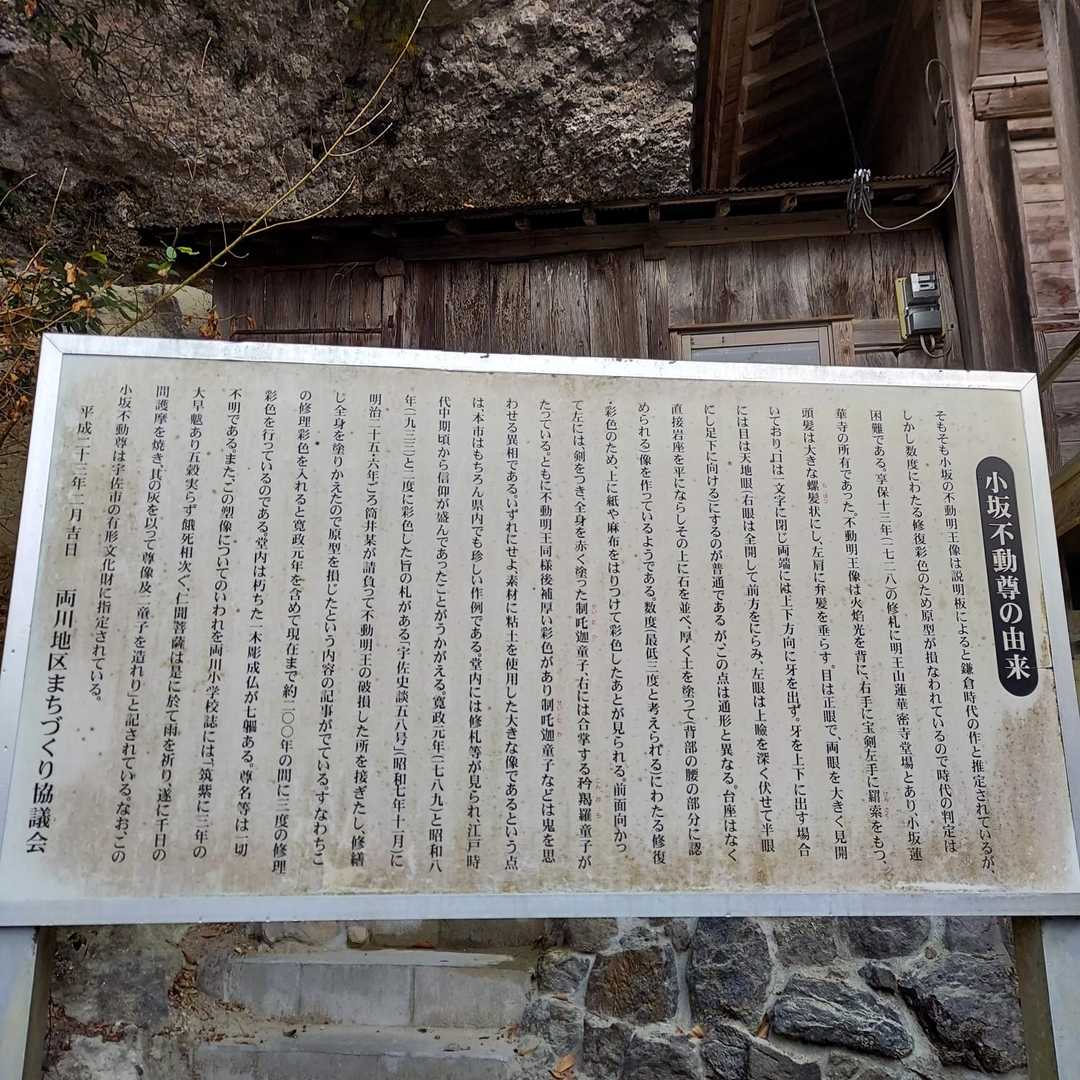 小坂不動尊の由来
そもそも小坂の不動明王像は説明板によると鎌倉時代の作と推定されているが、
しかし数度にわたる修復彩色のため原型が損なわれているので時代の判定は
困難である。享保十三年(一七二八)の修札に明王山蓮華密寺堂場とあり小坂蓮
華寺の所有であった。不動明王像は火焔光を背に、右手に宝剣左手に羂索をもつ、
頭髪は大きな螺髪状にし、左肩に弁髪を垂らす。目は正眼で、両眼を大きく見開
いており、口は一文字に閉じ両端には上下方向に牙を出す。牙を上下に出す場合
には目は天地眼(右眼は全開して前方をにらみ、左眼は上瞼を深く伏せて半眼
にし足下に向ける)にするのが普通であるが、この点は通形と異なる。台座はなく
直接岩座を平にならしその上に石を並べ、厚く土を塗って(背部の腰の部分に認
められる)像を作っているようである。数度(最低三度と考えられる)にわたる修復
・彩色のため、上に紙や麻布をはりつけて彩色したあとが見られる。前面向かっ
て左には剣をつき、全身を赤く塗った制吒迦童子、右には合掌する矜羯羅童子が
たっている。ともに不動明王同様後補厚い彩色があり制吒迦童子などは鬼を思
わせる異相である。いずれにせよ、素材に粘土を使用した大きな像であるという点
は、本市はもちろん県内でも珍しい作例である。堂内には修札等が見られ、江戸時
代中期頃から信仰が盛んであったことがうかがえる。寛政元年(一七八九)と昭和八
年(一九三三)と二度に彩色した旨の札がある(宇佐史談五八号)(昭和七年十一月)に
明治二十五・六年ごろ筒井某が請負って不動明王の破損した所を接ぎたし、修繕
し全身を塗りかえたので原型を損じたという内容の記事がでている。すなわちこ
の修理彩色を入れると寛政元年を含めて現在まで約二〇〇年の間に三度の修理
彩色を行っているのである。堂内は朽ちた一木彫成仏が七軀ある。尊名等は一切
不明である。また、この塑像についてのいわれを両川小学校誌には、「筑紫に三年の
大旱魃あり五穀実らず餓死相次ぐ、仁聞菩薩は是に於て雨を祈り、遂に千日の
間護摩を焼き、其の灰を以って尊像及二童子を造れり」と記されている。なお、この
小坂不動尊は宇佐市の有形文化財に指定されている。
平成二十三年二月吉日 両川地区まちづくり協議会